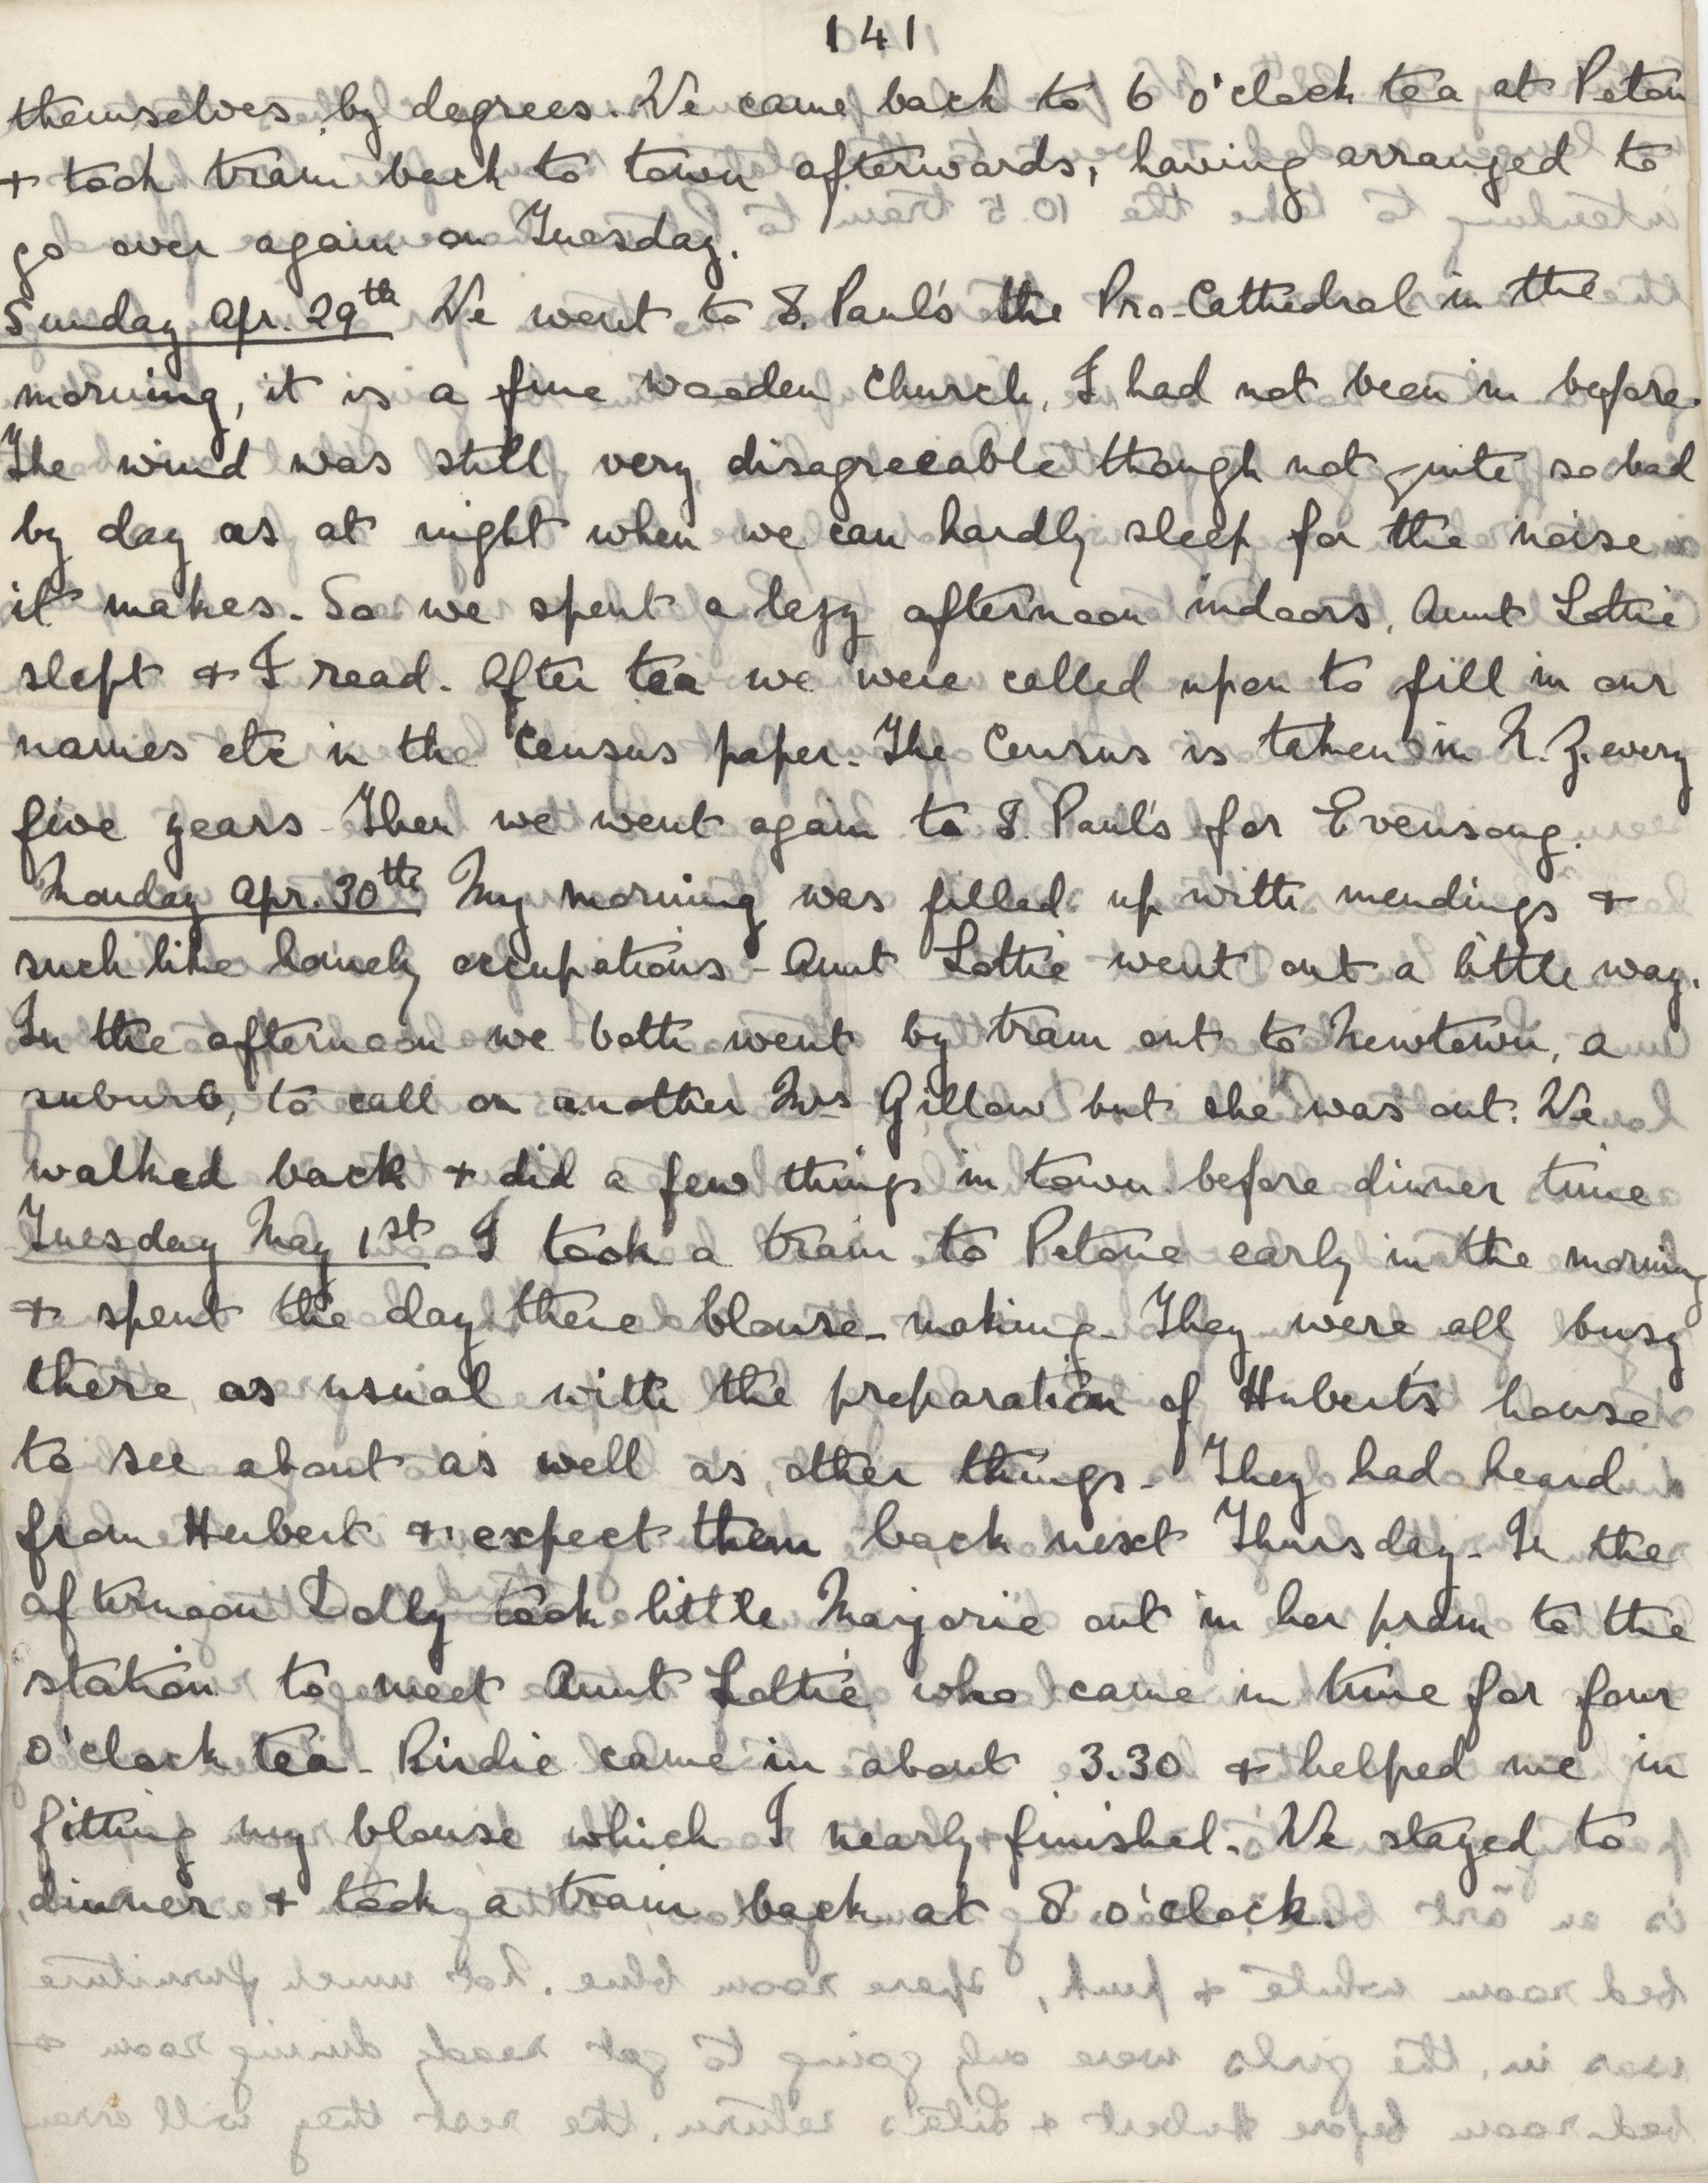 141
themselves by degrees. We came back to 6 o'clock tea at Peton
+ took train back to town afterwards, having arranged to
go over again on Tuesday.
Sunday Apr. 29th We went to S. Paul's the Pro-Cathedral in the
morning, it is a fine wooden church, I had not been in before.
The wind was still very disagreeable though not quite so bad
by day as at night when we can hardly sleep for the noise
it makes. So we spent a lazy afternoon indoors, Aunt Lottie
slept + I read. After tea we were called upon to fill in our
names etc in the Census paper. The Census is taken in N.Z. every
five years - Then we went again to S. Paul's for Evensong.
Monday Apr. 30th My morning was filled up with mendings +
such like homely occupations - Aunt Lottie went out a little way.
In the afternoon we both went by tram out to Newtown, a
suburb, to call on another Mrs Gillow but she was out. We
walked back + did a few things in town before dinner time
Tuesday May 1st I took a train to Petone early in the morning
+ spent the day there blouse-making. They were all busy
there as usual with the preparation of Hubert's house
to see about as well as other things. They had heard
from Hubert + expect them back next Thursday. In the
afternoon Dolly took little Marjorie out in her pram to the
station to meet Aunt Lottie who came in time for four
o'clock tea. Birdie came in about 3.30 + helped me in
fitting my blouse which I nearly finished. We stayed to
dinner + took a train back at 8 o'clock.